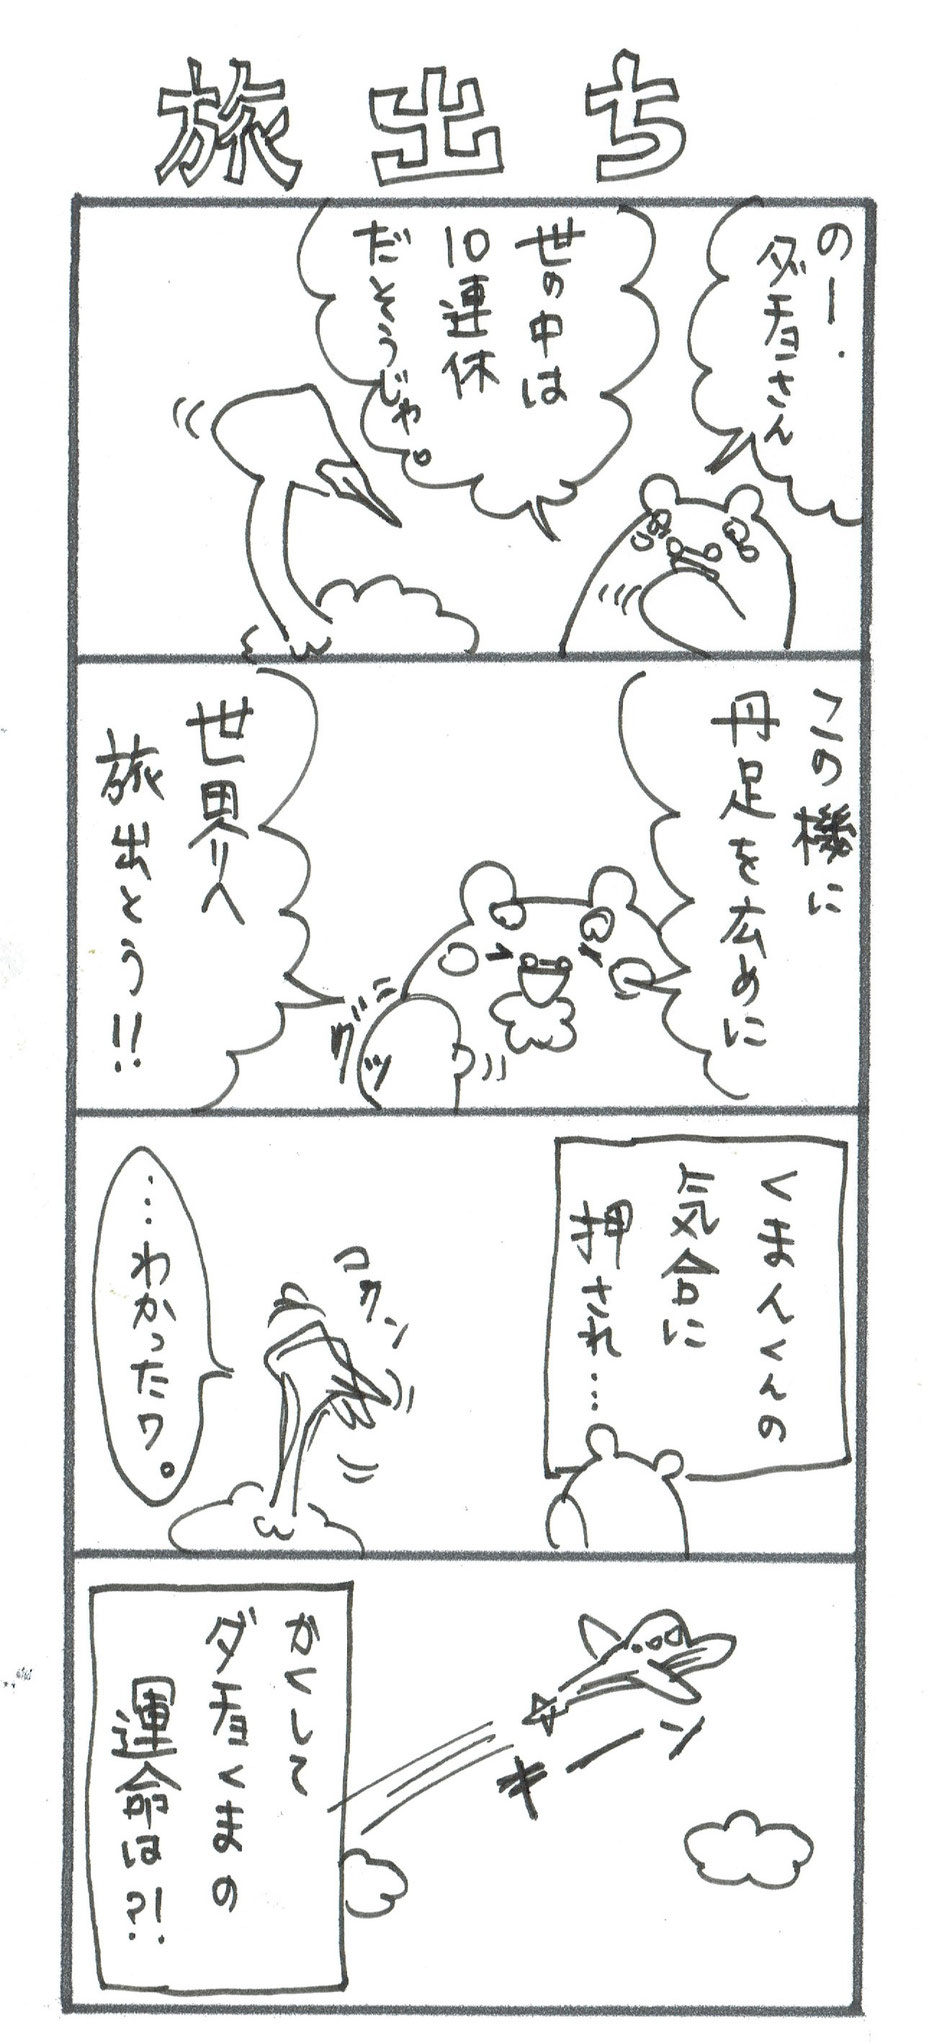 旅出ち
のー、
ダチョさん
世の中は
10連休
だそうじゃ。
この機に
丹足を広めに
世界へ
旅出とう!!
グッ
くまんくんの
気合に
押され…
コクン
…わかったワ。
キーーン
かくして
ダチョくまの
運命は?!